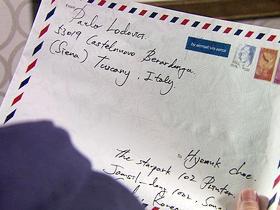 From
Paolo Lodovici
53019 Castelnuovo Berardenga
(Siena) Tuscany. Italy.
by airmail par avion
Hyemuk chae.
The starpark 102
Jamsil-dong 1002.
Korea